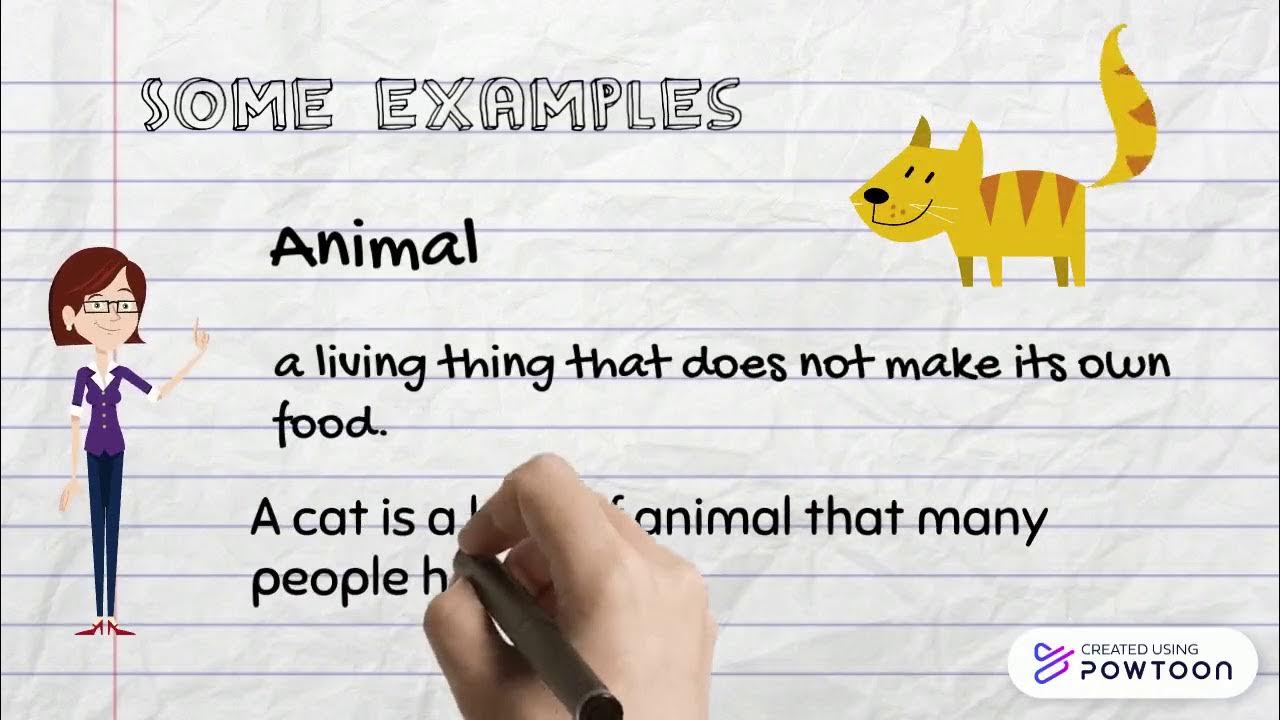 SOME EXAMPLES
Animal
a living thing that does not make its own
food.
A cat is a animal that many
people h
CREATED USING
POWTOON